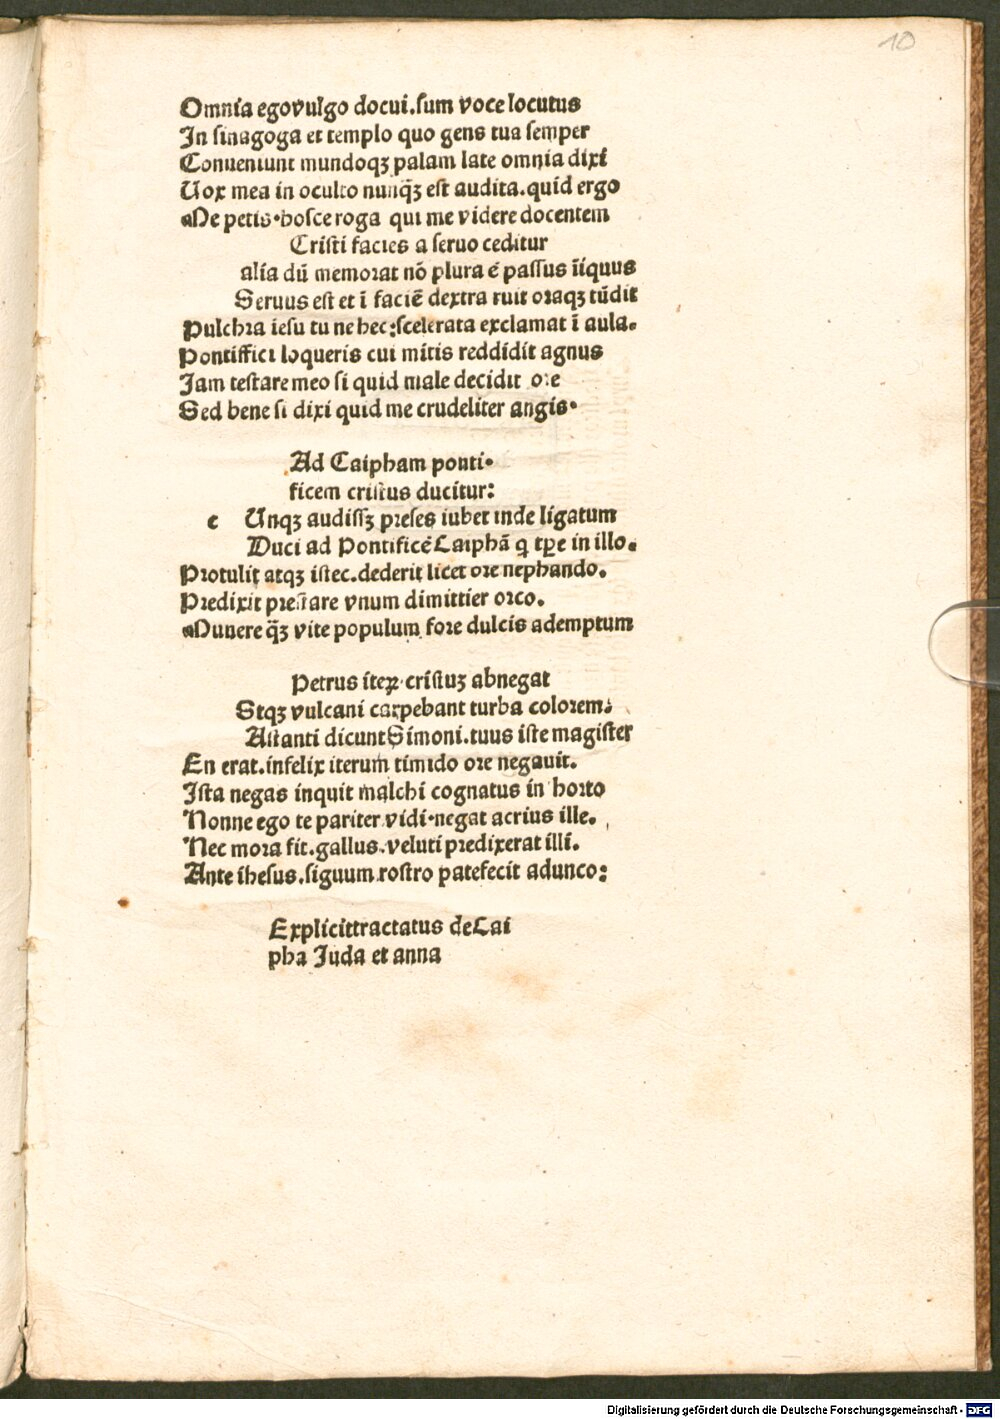 10
Omnia ego vulgo docui.sum voce locutus
In sinagoga et templo quo gens tua semper
Conueniunt mundoqꝫ palam late omnia dixi
Uox mea in oculto nunq̄ꝫ est audita.quid ergo
Me petis·hosce roga qui me videre docentem
Cristi facies a seruo ceditur
alia dū memorat nō plura ē passus īiquus
Seruus est et ī faciē dextra ruit oraqꝫ tūdit
Pulchra iesu tu ne hec:scelerata exclamat ī aula.
Pontiffici loqueris cui mitis reddidit agnus
Jam testare meo si quid male decidit ore
Sed bene si dixi quid me crudeliter angis·
Ad Caipham ponti·
ficem cristus ducitur:
c Unqꝫ audissꝫ preses iubet inde ligatum
Duci ad Pontificē Caiphā q tꝑe in illo.
Protulit atqꝫ istec.dederit licet ore nephando.
Predixit prestare vnum dimittier orco.
Munere q̄ꝫ vite populum fore dulcis ademptum
Petrus iteꝝ·cristuꝫ abnegat
Stqꝫ vulcani carpebant turba colorem:
Astanti dicunt Simoni.tuus iste magister
En erat.infelix iterum timido ore negauit.
Ista negas inquit malchi cognatus in horto
Nonne ego te pariter vidi·negat acrius ille.
Nec mora fit.gallus.veluti predixerat illi.
Ante ihesus.signum rostro patefecit adunco:
Explicit tractatus de Cai
pha Juda et anna
Digitalisierung gefördert durch die Deutsche Forschungsgemeinschaft - DFG